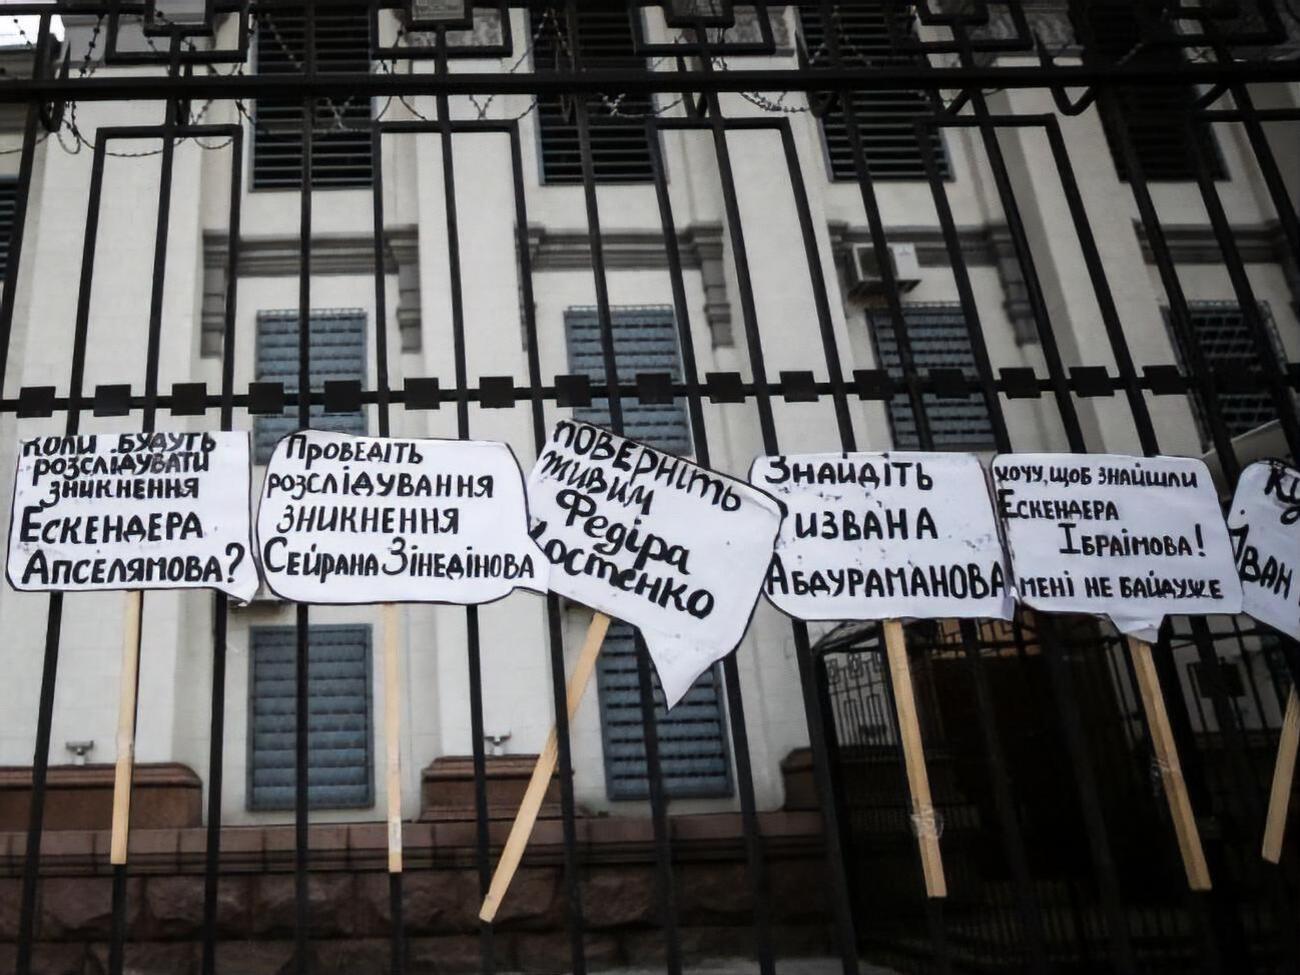 КОЛИ БУДУТЬ
РОЗСЛІДУВАТИ
ЗНИКНЕННЯ
ЕСКЕНДЕРА
АПСЕЛЯМОВА?
ПРОВЕДІТЬ
РОЗСЛІДУВАННЯ
ЗНИКНЕННЯ
СЕЙРАНА ЗІНЕДІНОВА
ПОВЕРНІТЬ
ЖИВИМ
ФЕДІРА
КОСТЕНКО
ЗНАЙДІТЬ
ІЗВАНА
АБДУРАМАНОВА
ХОЧУ, ЩОБ ЗНАЙШЛИ
ЕСКЕНДЕРА
ІБРАІМОВА!
МЕНІ НЕ БАЙДУЖЕ
ІВАН